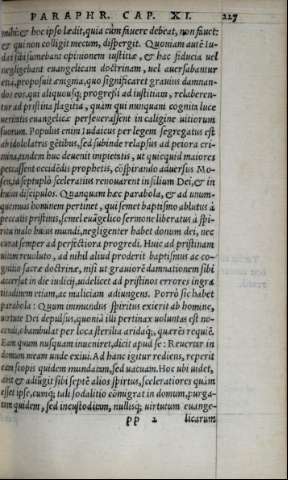 PARAPHR. CAP. XI. 227
mihi: & hoc ipso lædit, quia cùm fauere debeat, non fauet:
& qui non colligit mecum, dispergit. Quoniam autē Iu-
dæi sibi sumebant opinionem iustitiæ, & hac fiducia uel
negligebant euangelicam doctrinam, uel auersabantur
eā, proposuit ænigma, quo significaret grauius damnan-
dos eos, qui aliquousq; progressi ad iustitiam, relaberen-
tur ad pristina flagitia, quàm qui nunquam cognita luce
ueritatis euangelicæ perseuerassent in caligine uitiorum
suorum. Populus enim Iudaicus per legem segregatus est
ab idololatris gētibus, sed subinde relapsus ad peiora cri-
mina, tandem huc deuenit impietatis, ut quicquid maiores
peccassent occidēdis prophetis, cōspirando aduersus Mo-
sen, ia septuplò sceleratius renouarent in filium Dei, & in
huius discipulos. Quanquam hæc parabola, & ad unum-
quemus hominem pertinet, qui semel baptismo ablutus à
peccatis pristinis, semel euāgelico sermone liberatus à spi-
ritu malo huius mundi, negligenter habet donum dei, nec
curat semper ad perfectiora progredi. Huic ad pristinam
uitam reuoluto, ad nihil aliud proderit baptismus ac co-
gnitio sacræ doctrinæ, nisi ut grauiorē damnationem sibi
accersat in die iudicij, uidelicet ad pristinos errores ingra
titudinem etiam, ac maliciam adiungens. Porrò sic habet
parabola: Quum immundus spiritus exierit ab homine,
uirtute Dei depulsus, quoniā illi pertinax uoluntas est no-
cendi, obambulat per loca sterilia aridaq;, querēs requiē.
Eam quum nusquam inueniret, dicit apud se: Reuertar in
domum meam unde exiui. Ad hanc igitur rediens, reperit
eam scopis quidem mundatam, sed uacuam. Hoc ubi uidet,
abit & adiūgit sibi septē alios spiritus, sceleratiores quàm
esset ipse, cumq; tali sodalitio cōmigrat in domum, purga-
tam quidem, sed incustoditam, nullisq; uirtutum euange-
pp 2 licarum